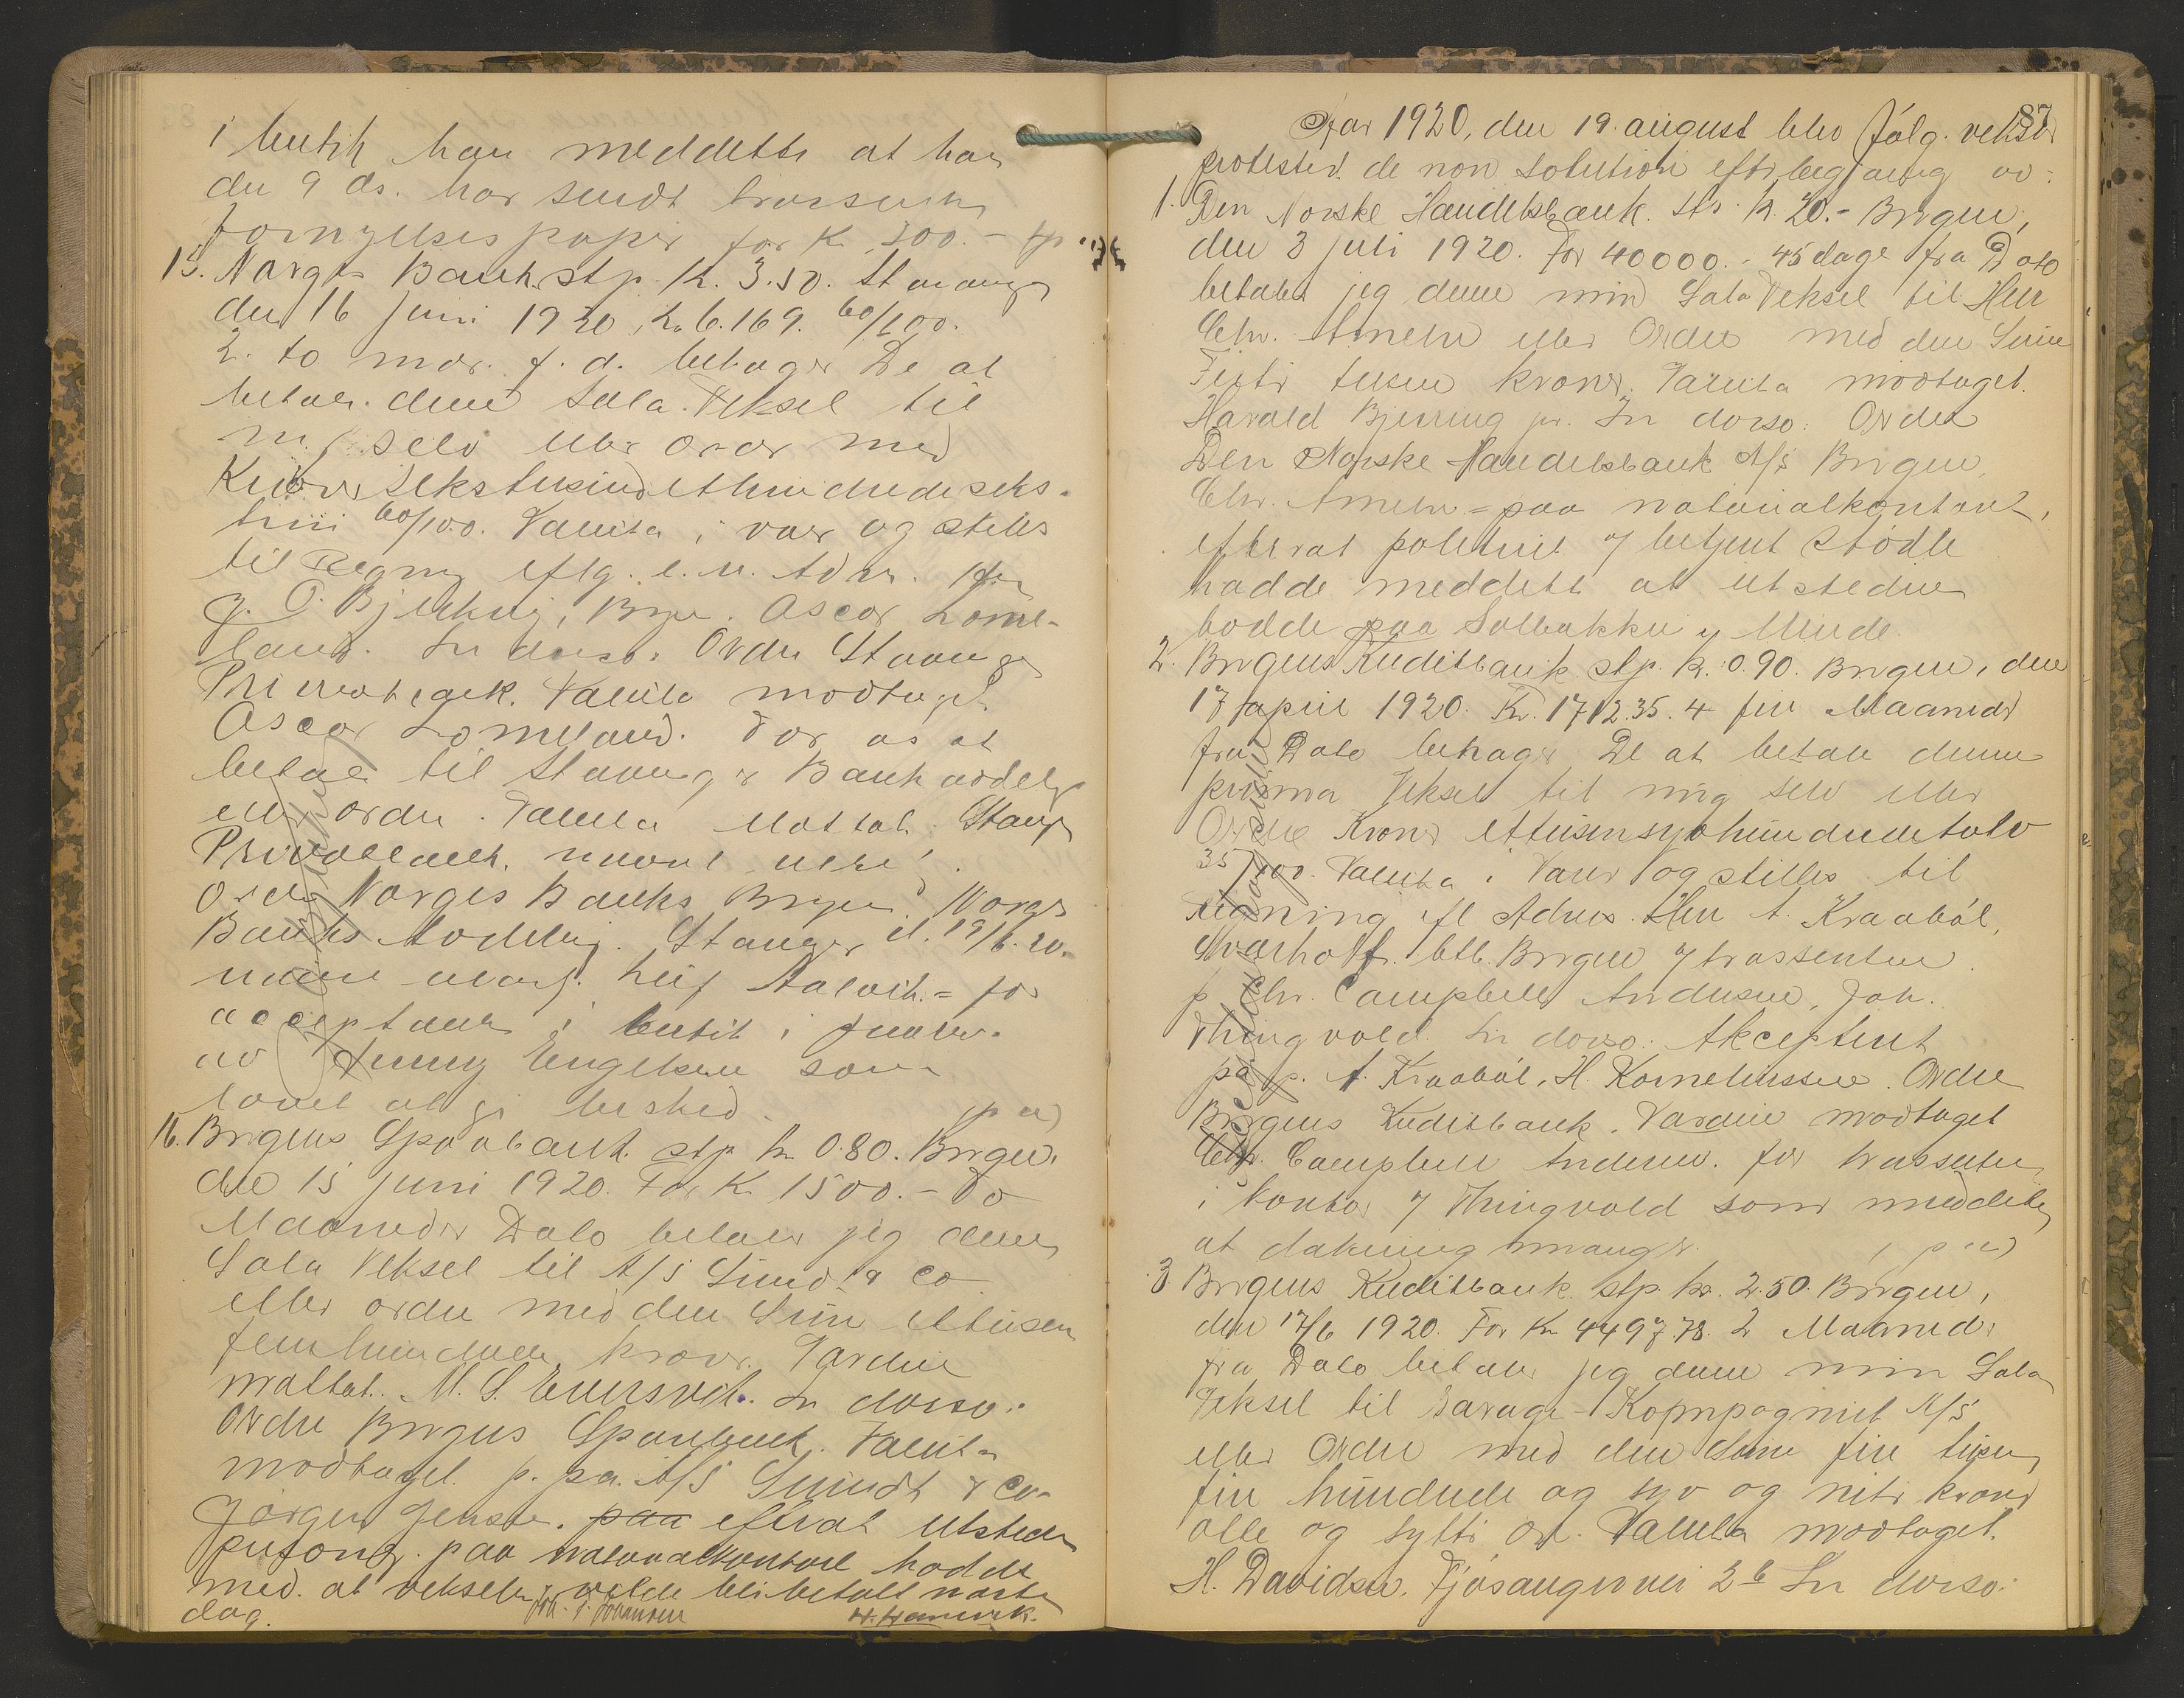 i butik han meddelte at han
den 9 ds. har sendt trassenten
fornyelsespapir for K 300.-
15. Norges Bank stp. K. 3.50. Stavanger
den 16 juni 1920, K. 6.169. 60/100.
2. to mdr. f. d. behager De at
betale denne Sola Veksel til
mig selv eller ordre med
Kroner Sekstusindethundredeseks-
60/100. Valuta i varer og stilles
til Regning eftg. e. u. Adv.
J. O. Bjelkvig, Bergen. Ascar Lome-
land. In dorso. Ordre Stavanger
Privatbank. Valuta modtaget.
Ascar Lomeland. For os at
betale til Stavanger Bankavdeling
eller ordre. Valuta Mottat. Stavanger
Privatbank.
Ordre Norges Banks Bergen. Norges
Banks Avdeling. Stavanger d. 19/6.20.
Leif Aalvik. = for
acceptanten i butik i
av Jenny Engelsen som
lovet at gi besked.
16. Bergens Sparebank stp. kr 0.80. Bergen,
den 15 juni 1920. For K 1500.- To
Maaneder Dato betaler jeg denne
Sola Veksel til A/S Sundt & Co
eller ordre med den Sum ettusen
femhundrede kroner. Værdien
mottat. M. S. Eversvik. In dorso:
Ordre Bergens Sparebank. Valuta
modtaget p. pa. A/S Sundt & Co.
Jørgen Jensen. paa efterat utsteder
paa notarialkontoret hadde
med. at vekselen vilde bli betalt næste
dag. Joh. S. Johansen H. Hamvik.
87
Aar 1920, den 19. august blev følg. veksler
protestert de non solution efter begjæring av:
1. Den Norske Handelsbank. Stp. K. 20.- Bergen,
den 3 juli 1920. For 40000.- 45 dage fra Dato
betaler jeg denne min Sola Veksel til Herr
Chr. Ameln eller Ordre med den Sum
Firti tusen kroner. Valuta modtaget.
Harald Bjerring jr. In dorso: Ordre
Den Norske Handelsbank A/S Bergen.
Chr. Ameln = paa notarialkontoret,
efterat politiet v/ betjent Stødle
hadde meddelt at utstederen
bodde paa Solbakken v/ Minde.
2. Bergens Kreditbank stp. K. 0.90. Bergen, den
17 april 1920. Kr. 1712.35. 4 fire Maaneder
fra Dato behager De at betale denne
prima Veksel til mig selv eller
Ordre Kroner Ettusensyvhundredetolv
35/100. Valuta i Varer og stilles til
regning ifl Advis. Herr A. Kraabøl,
Sværholt. btl. Bergen v/ trassenten.
p. Chr. Campbell Andersen, Joh.
Thingvold. In dorso: Akceptert
pr. p. A. Kraabøl, H. Kornelinssen. Ordre
Bergens Kreditbank. Værdien modtaget
Chr. Campbell Andersen. for trassenten
i kontor v/ Thingvold som meddelte
at dækning mangler.
3 Bergens Kreditbank. stp. kr. 2.50. Bergen,
den 17/6 1920. For Kr 4497.78. 2 Maaneder
fra Dato betaler jeg denne min Sola
Veksel til Garage-Kompagniet A/S
eller Ordre med den Sum fire tusen
fire hundrede og syv og niti kroner
otte og sytti Øre. Valuta modtaget.
H. Davidsen. Fjøsangerveien 2b In dorso: